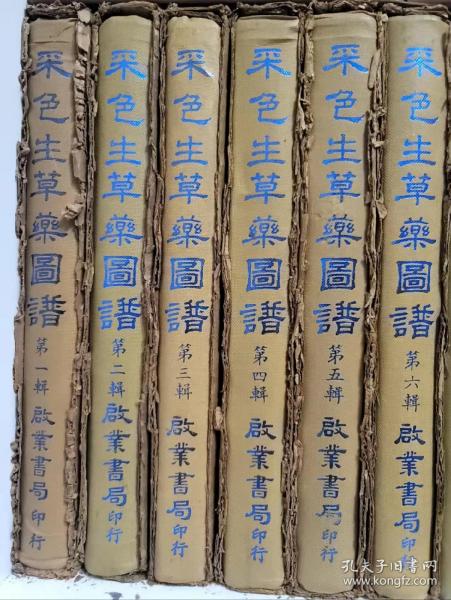 采色生草藥圖譜 第一輯 啟業書局印行
采色生草藥圖譜 第二輯 啟業書局印行
采色生草藥圖譜 第三輯 啟業書局印行
采色生草藥圖譜 第四輯 啟業書局印行
采色生草藥圖譜 第五輯 啟業書局印行
采色生草藥圖譜 第六輯 啟業書局印行
孔夫子旧书网
www.kongfz.com